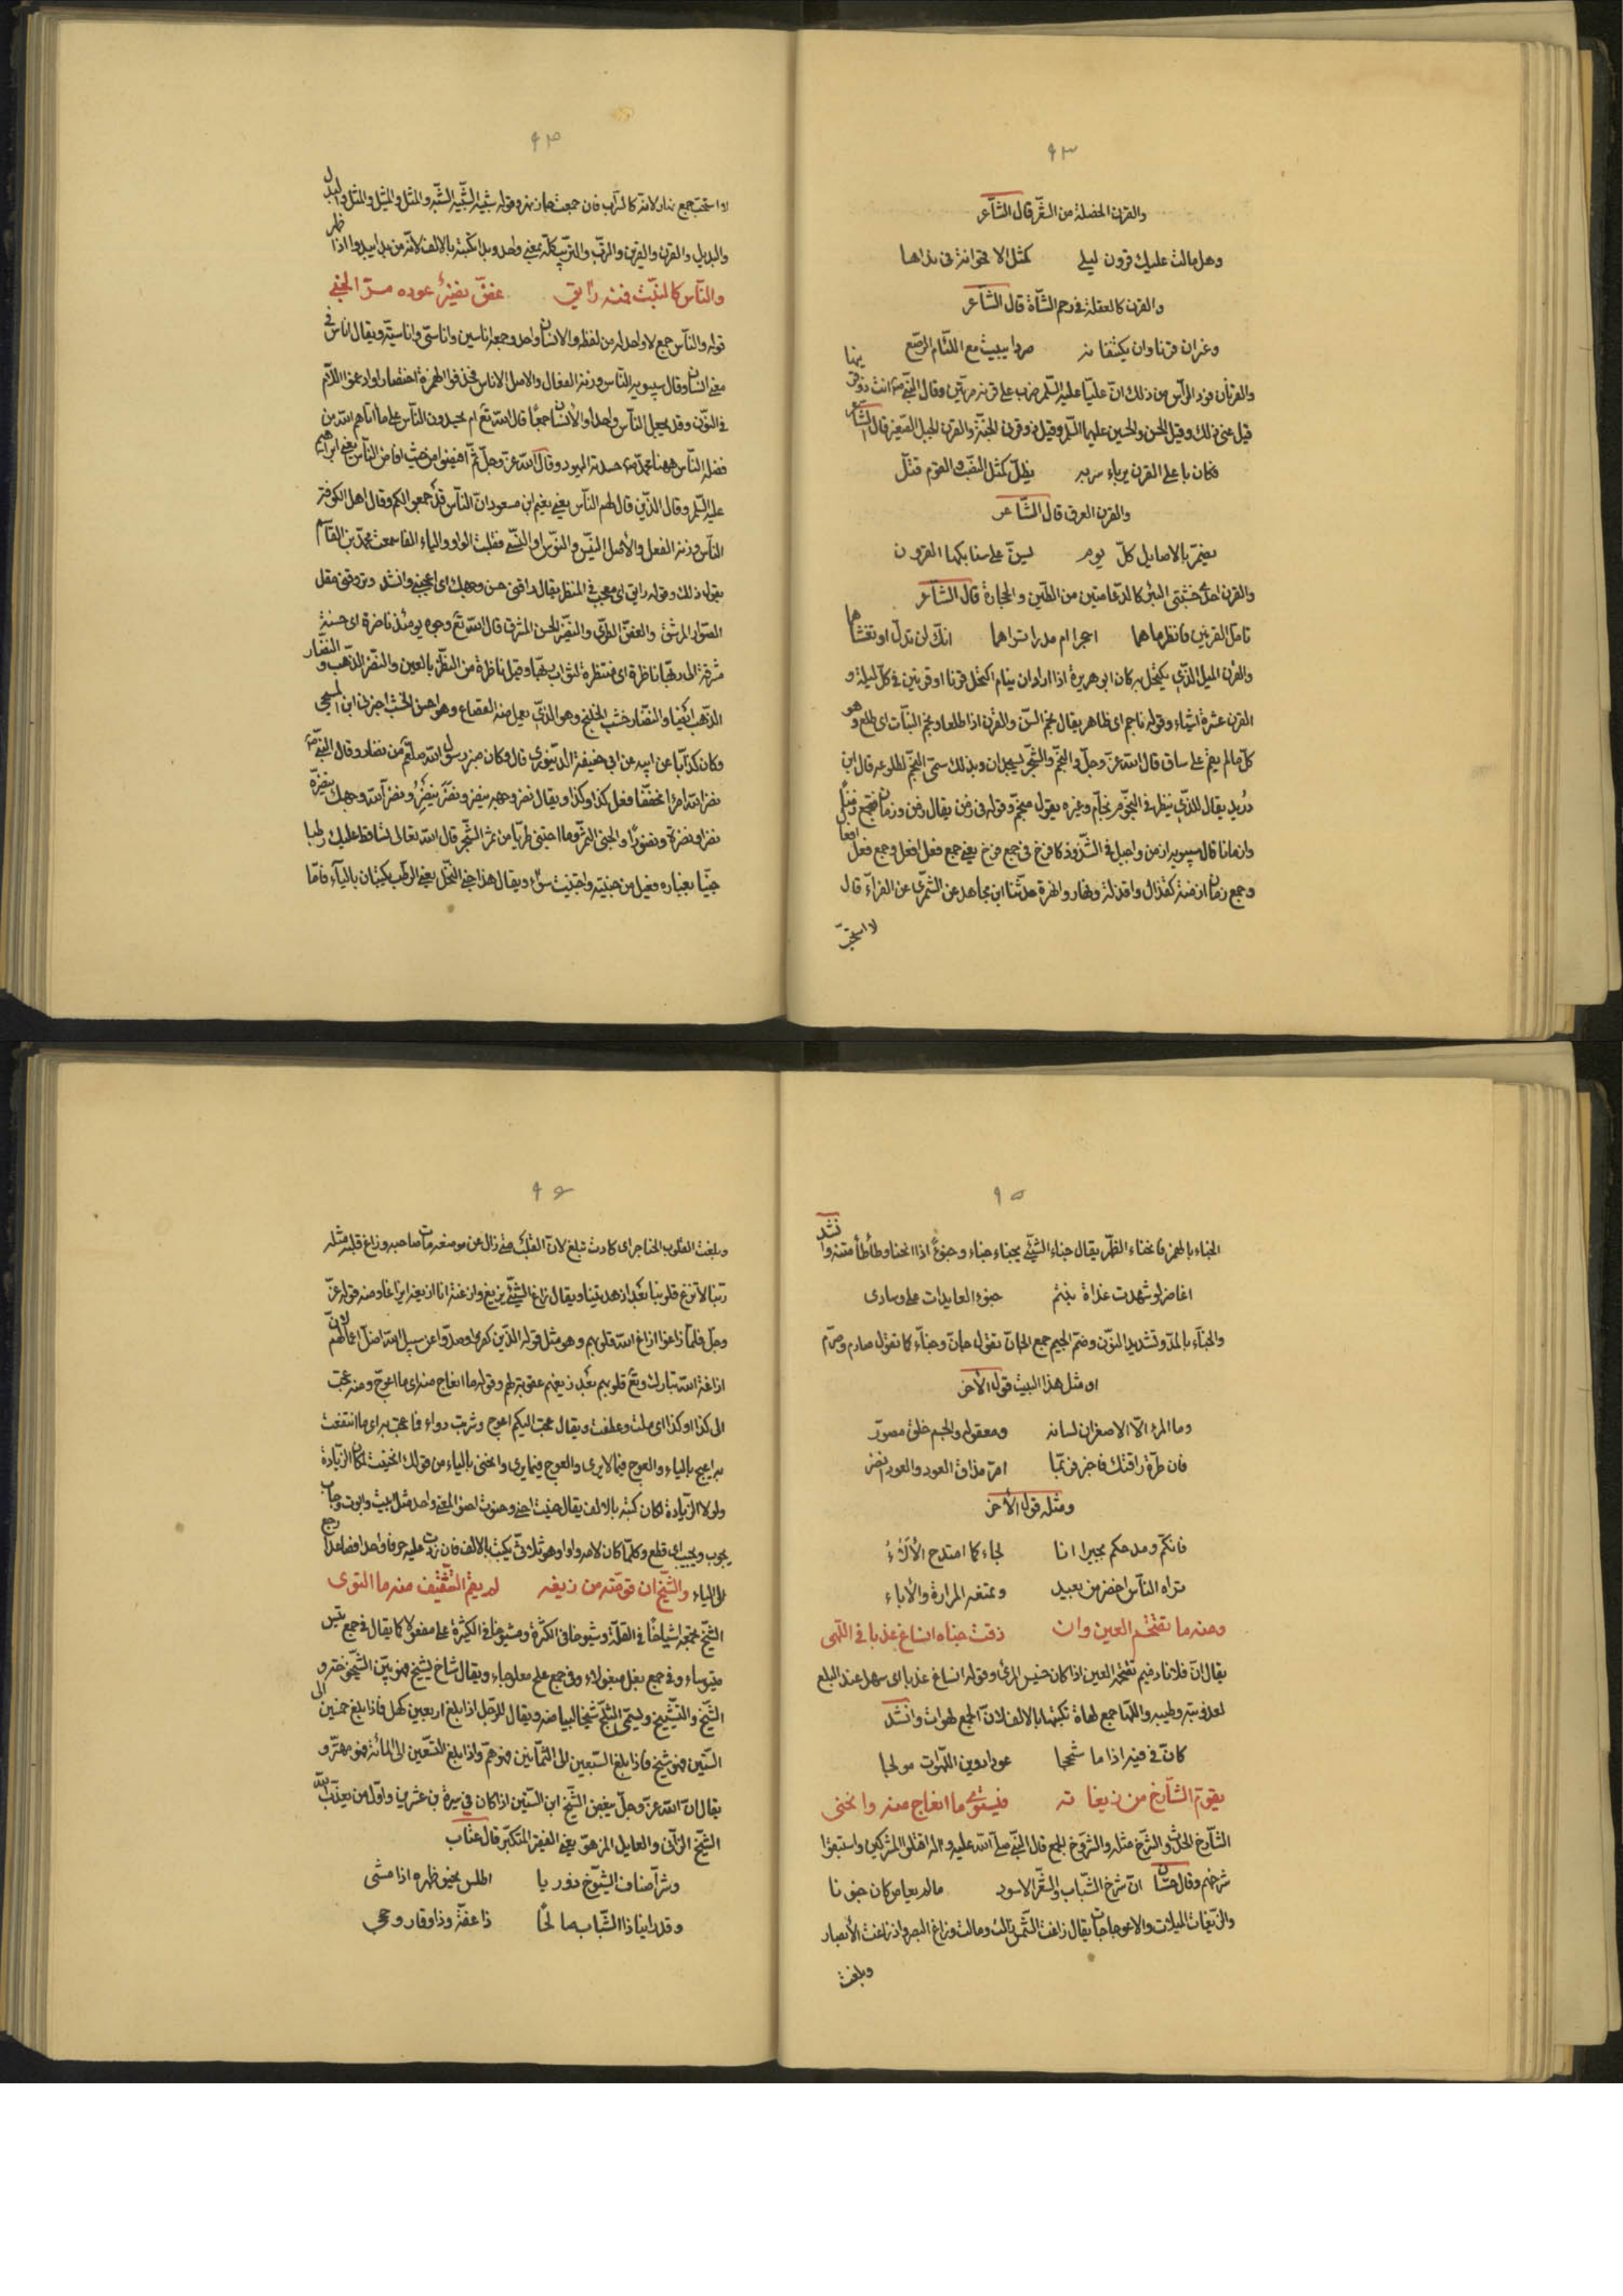 ٩٣
والقرن الخصلة من الشعر قال الشاعر
وهل مالت عليك قرون ليلى كمثل الاقحوانة فى نداها
والقرن كالعفلة فى رحم الشاة قال الشاعر
وغزان قرنا وان يكتفانه مع اللئام الرضع
والقرنان فود الراس من ذلك ان عليا عليه السلم ضرب على قرنه مرتين وقال النبى انت ذو قرنيها
قيل عنى ذلك وقيل الحسن والحسين عليهما السلم وقيل ذو قرنى الجنة والقرن الجبل الصغير قال الشاعر
فكان باعلى القرن يظل كمثل الضب والقوم
والقرن العرق قال الشاعر
بالاصايل كل يوم على سنابكها القرون
والقرن احد خشبتى البئر كالدعامتين من الطين والحجارة قال الشاعر
تامل القرنين فانظر ماهما احجرا ام مدرا تراهما انك لن تذل او تغشاها
والقرن الميل الذى يكتحل به كان ابو هريرة اذا اراد ان ينام اكتحل قرنا او قرنين فى كل ليلة و
القرن عشرة اشياء وقوله ناجم اى ظاهر يقال نجم السن والقرن اذا طلعا ونجم النبات اى طلع وهو
كل مالم يقم على ساق قال الله عز وجل والنجم والشجر يسجدان وبذلك سمى النجم لطلوعه قال ابن
دريد يقال للذى ينظر فى النجوم نجام وغيره يقول منجم وقوله فى زمن يقال زمن وزمان فتجمع زمنا
وازمانا قال سيبويه ازمن واجبل فى الشذوذ كافرخ فى جمع فرخ يعنى جمع فعل افعل وجمع فعل افعالا
وجمع زمان ازمنة كقذال واقذلة حدثنا ابن مجاهد عن السمرى عن الفراء قال
لا استحب
٩٤
لا استحب جمع لانه كالتراب فان جمعت وقوله شبيه الشبيه الشبه والمثل والمثيل والمثل والبدل
والبديل والقرن والقرين والترب والتريب كله بمعنى واحد وبدا كتبته بالالف لانه من بدا يبدوا اذا ظهر
والناس كالنبت فمنه رائق غض نضير عوده مر الجنى
قوله والناس جمع لا واحد له من لفظه والانسان واحد وجمعه اناسين واناسى واناسية ويقال اناس فى
معنى انسان وقال سيبويه الناس وزنه العفال والاصل الاناس فحذفوا الهمزة اختصارا وادغموا اللام
فى النون وقد يجعل الناس واحدا والانسان جمعا قال الله تع ام يحسدون الناس على ما اتاهم الله من
فضله الناس ههنا محمد حسدته اليهود وقال الله عز وجل ثم افيضوا من حيث افاض الناس يعنى ابراهيم
عليه السلم وقال الذين قال لهم الناس يعنى نعيم ابن مسعود ان الناس قد جمعوا لكم وقال اهل الكوفة
الناس وزنه الفعل والاصل النيس والنوس او النسى فقلبت الواو والياء الفا سمعت محمد بن القاسم
يقول ذلك وقوله رايق اى معجب فى المنظر يقال راقنى حسن وجهك اى اعجبنى وانشد
والغض الطرى والنضير الحسن المشرق قال الله تع وجوه يومئذ ناضرة اى حسنة
مشرقة الى ربها ناظرة اى منتظرة لثواب ربها وقيل ناظرة من النظر بالعين والنضر الذهب والنضار
الذهب ايضا والنضار خشب الخلنج وهو الذى يعمل منه القصاع وهو احسن الخشب اخبرنى ابن المسيحى
وكان كذابا عن ابيه عن ابى حنيفة الدينورى قال وكان منبر رسول الله صلعم من نضار وقال النبى
نضر الله امرا مخففا فعل كذا وكذا ويقال نضر وجهه ينضر ونضر ينضر ونضر الله وجهك ينضره
نضرا ونضرة ونضورا والجنى الثمر وما اجتنى طريا من ثمر الشجر قال الله تعالى تساقط عليك رطبا
جنيا بغباره فعيل من جنيته واجنيت سواء ويقال هذا جنى النخل يعنى الرطب يكتبان بالياء فاما
٩٥
الجناء بالهمز فانحناء الظهر يقال جناء الشيئ يجناء جناء وجنوءا اذا انحنا وطأطأ متنه وانشد
اغاضر لو شهدت غداة بنتم جنوء العايدات على وسادى
والجناء بالمد وتشديد النون وضم الجيم جمع الجان تقول جان وجناء كما تقول صارم وصرام
او مثل هذا البيت قول الاخر
وما المرء الا الاصغران لسانه ومعقوله والجسم خلق مصور
فان طرة راقتك فاخبر فربما امر مذاق العود والعود اخضر
ومثله قول الاخر
فانكم ومدحكم بجيرا انا لجاء كما امتدح الألاء
يراه الناس اخضر من بعيد وتمنعه المرارة والاباء
ومنه ما تقتحم العين وان ذقت جناه انساغ عذبا فى اللهى
يقال ان فلانا دميم تقتحمه العين اذا كان خسيس المرئى وقوله انساغ عذبا اى سهل عند البلع
لعذوبته وطيبه واللها جمع لهاة تكتبها بالالف لان الجمع لهوات وانشد
كان فى فيه اذا ما شحجا عودا دوين اللهوات مولجا
يقوم الشارخ من زيغانه فيستوى ما انعاج منه وانحنى
الشارخ الحدث والشرخ مثله والشروخ الجمع قال النبى صلى الله عليه وآله اقتلوا المشركين واستبقوا
شرخهم وقال حسان ان شرخ الشباب والشعر الاسود مالم يعاص كان جنونا
والزيغان الميلان والاعوجاج يقال زاغت الشمس زالت ومالت وزاغ البصر واذ زاغت الأبصار
وبلغت
٩٦
وبلغت القلوب الحناجر اى كادت تبلغ لان القلب متى زال عن موضعه مات صاحبه وزاغ قلبه مثله
ربنا لا تزغ قلوبنا بعد اذ هديتنا ويقال زاغ الشيئ يزيغ وازغته انا ازيغه ازاغا ومنه قوله عز
وجل فلما زاغوا ازاغ الله قلوبهم وهو مثل قوله الذين كفروا وصدوا عن سبيل الله اضل اعمالهم
ازاغة الله تبارك وتع قلوبهم بعد زيغهم عقوبة لهم وقوله ما انعاج منه اى ما اعوج ومنه عجت
الى كذا وكذا اى ملت وعطفت ويقال عجت اليكم اعوج وشربت دواء فما عجت به اى ما انتفعت
به اعيج بالياء والعوج فيما لا يرى والعوج فيما يرى وانحنى بالياء من قولك انحنيت لمكان الزيادة
ولولا الزيادة لكان كتبه بالالف يقال حنيت احنى وحنوت احنو المعنى واحد
يجوب ويجيب اى قطع وكلما كان لامه واوا وهو ثلاثى يكتب بالالف فان زدت عليه حرفا واحدا فصاعدا رجع
الى الياء والشيخ ان قومته من زيغه لم يقم التثقيف منه ما التوى
الشيخ يجمع اشياخا فى القلة وشيوخا فى الكثرة ومشيوخا فى الكثيرة على مفعولا كما يقال فى جمع تيس
متيوساء وفى جمع بغل مبغولاء وفى جمع علج معلوجاء ويقال شاخ يشيخ فهو بين الشيخوخة و
الشيخ والتشييخ وليسمى الثلج شيخا لبياضه ويقال للرجل اذا بلغ اربعين كهل فاذا بلغ خمسين الى
الستين فهو شيخ فاذا بلغ السبعين الى الثمانين فهو هم واذا بلغ التسعين الى المائة فهو مهتر و
يقال ان الله عز وجل يبغض الشيخ ابن الستين اذا كان فى سيرة بن عشرين واول من يعذب الله
الشيخ الزانى والعايل المزهو يعنى الفقير المتكبر قال عتاب
وشر اصناف الشيوخ ذو ريا اطلس يحنو ظهره اذا مشى
وقد راينا ذا الشباب ذا عفة وذا وقار وحجى